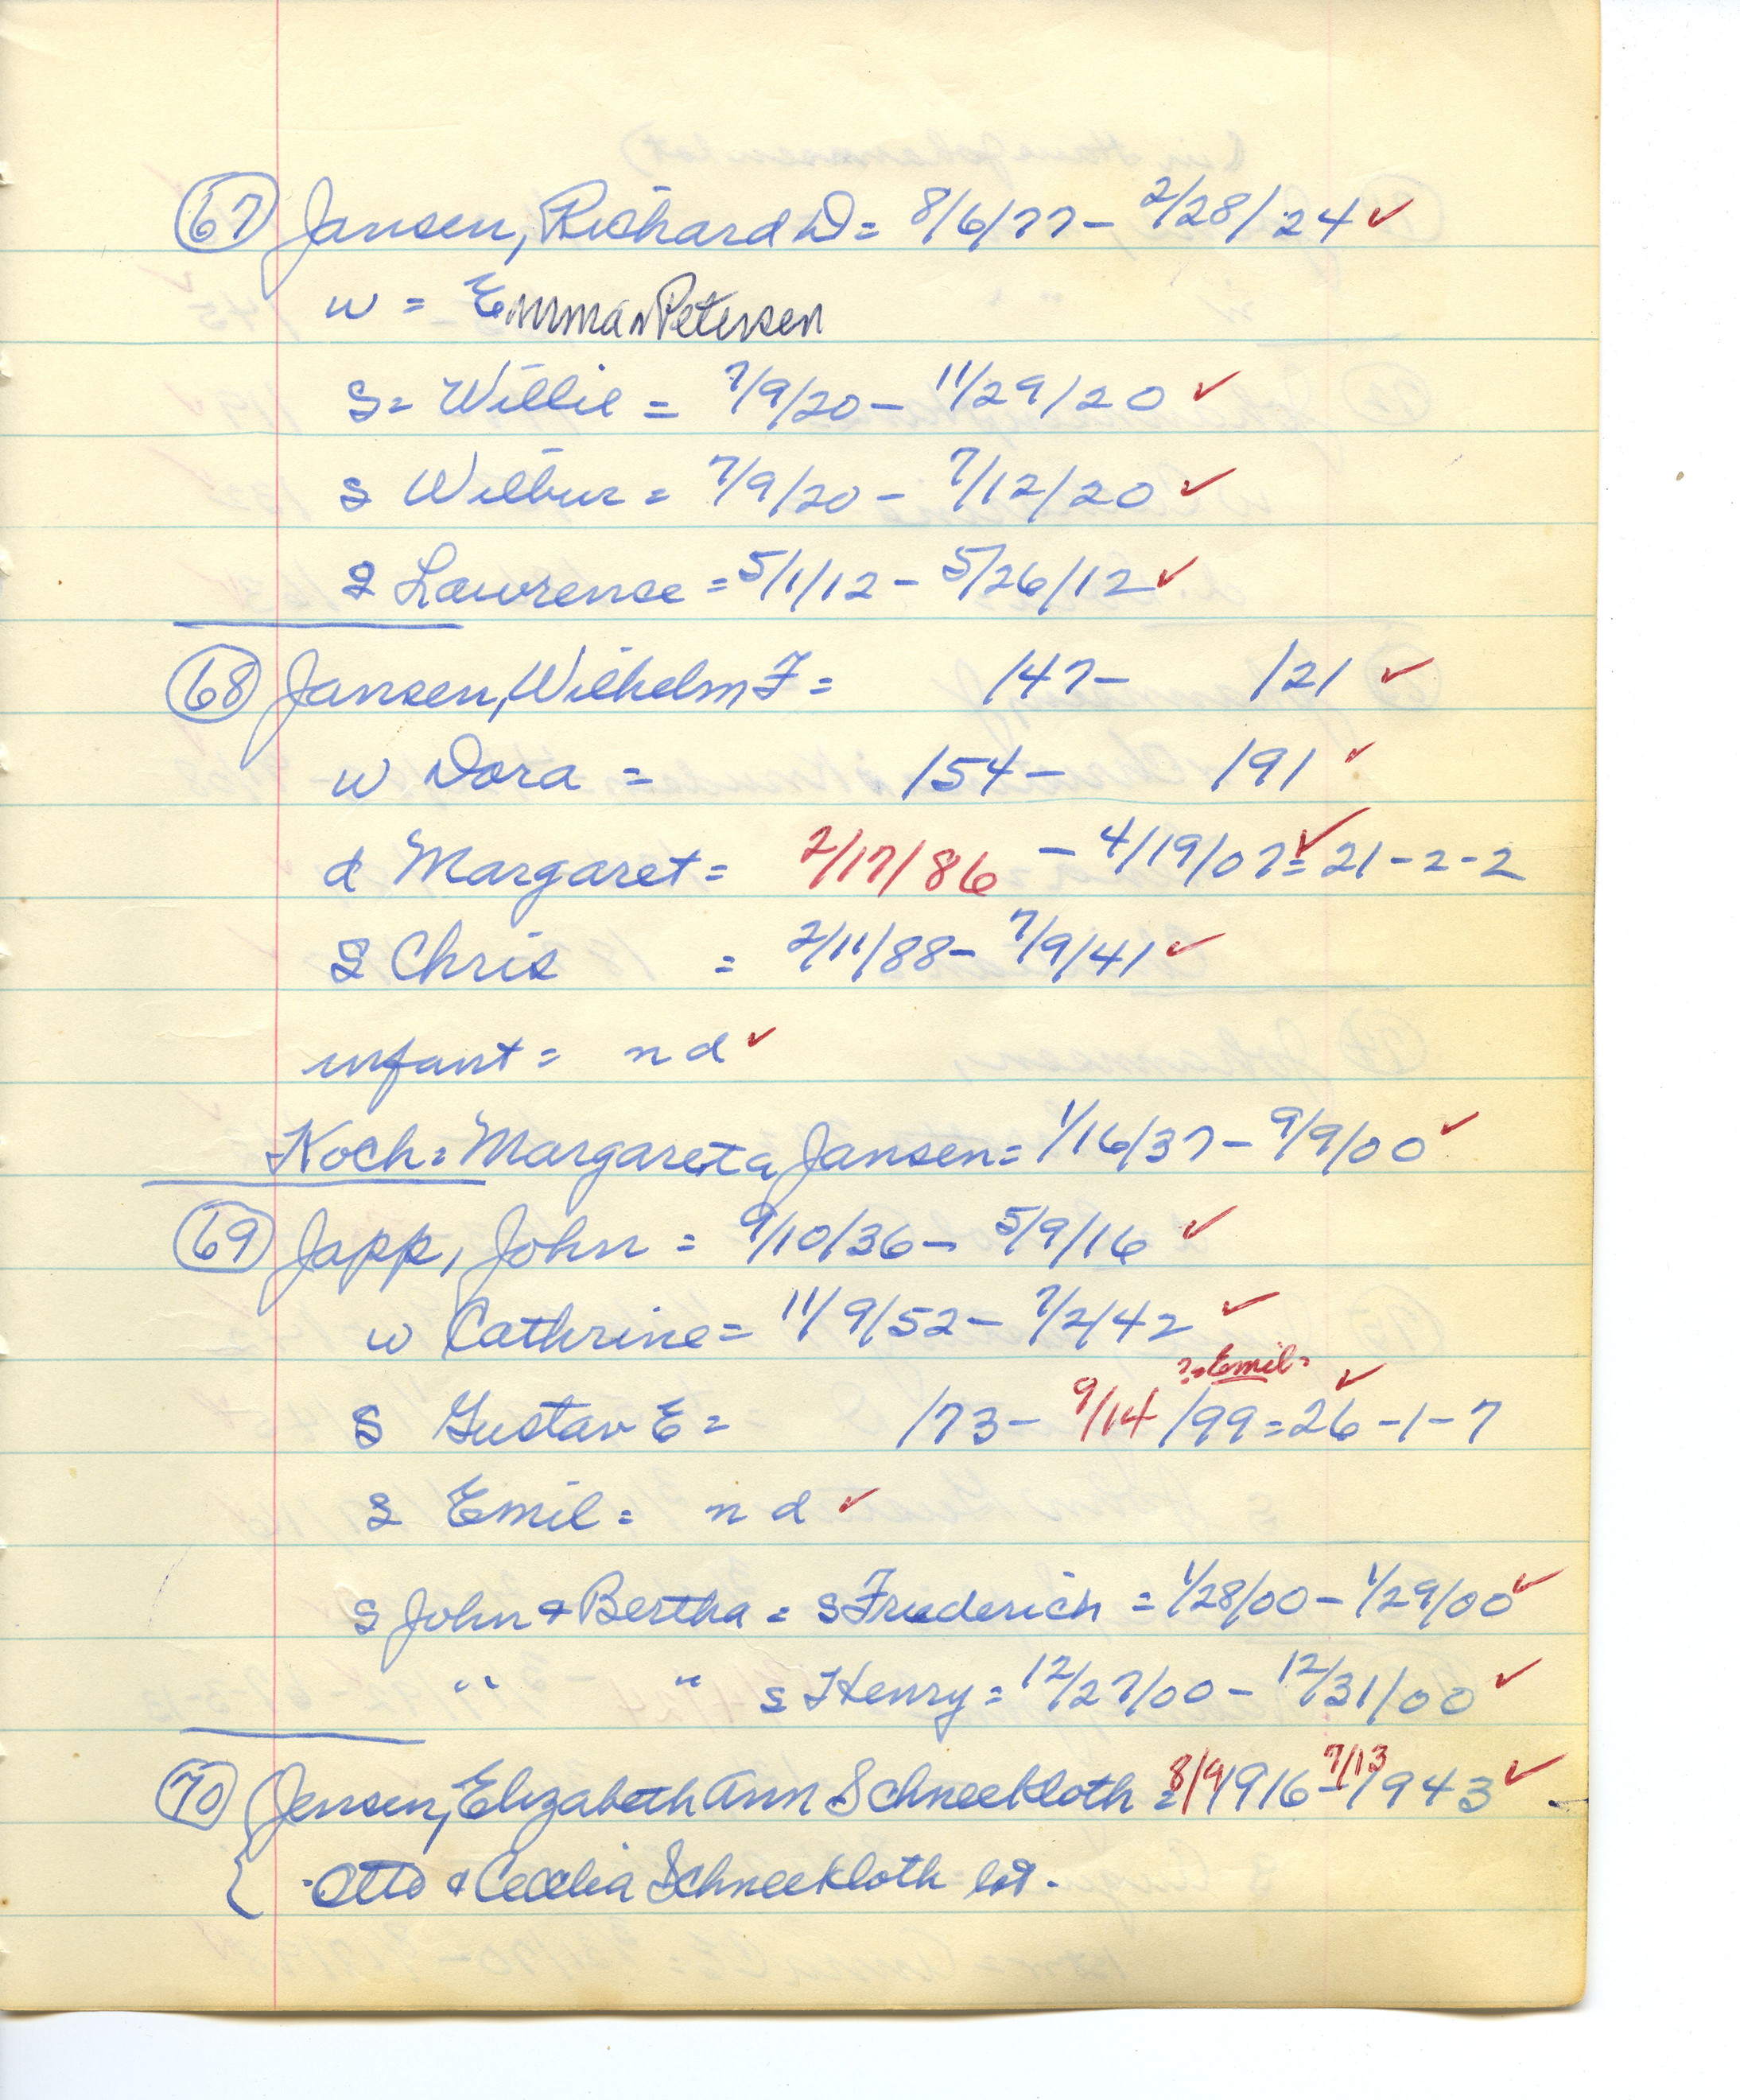 67 Jansen, Richard D = 8/6/77 - 2/28/24 ✓
w = Emma Petersen
S = Willie = 7/9/20 - 11/29/20 ✓
s Wilbur = 7/9/20 - 7/12/20 ✓
s Lawrense = 5/1/12 - 5/26/12 ✓
68 Jansen, Wilhelm F = /47 - /21 ✓
w Dora = /54 - /91 ✓
d Margaret = 2/17/86 - 4/19/07 ✓ = 21-2-2
s Chris = 2/11/88 - 7/9/41 ✓
infant = nd ✓
Koch = Margareta Jansen = 1/16/37 - 9/9/00 ✓
69 Japp, John = 9/10/36 - 5/9/16 ✓
w Cathrine = 11/9/52 - 7/2/42 ✓
? = Emil = ✓
S Gustav E = /73 - 9/14/99 = 26-1-7
s Emil = nd ✓
s John & Bertha = s Friederich = 1/28/00 - 1/29/00 ✓
" " s Henry = 12/27/00 - 12/31/00 ✓
70 Jensen, Elizabeth Ann Schneekloth = 8/9/1916 - 7/13/1943 ✓
{ Otto & Cecelia Schneekloth lot.